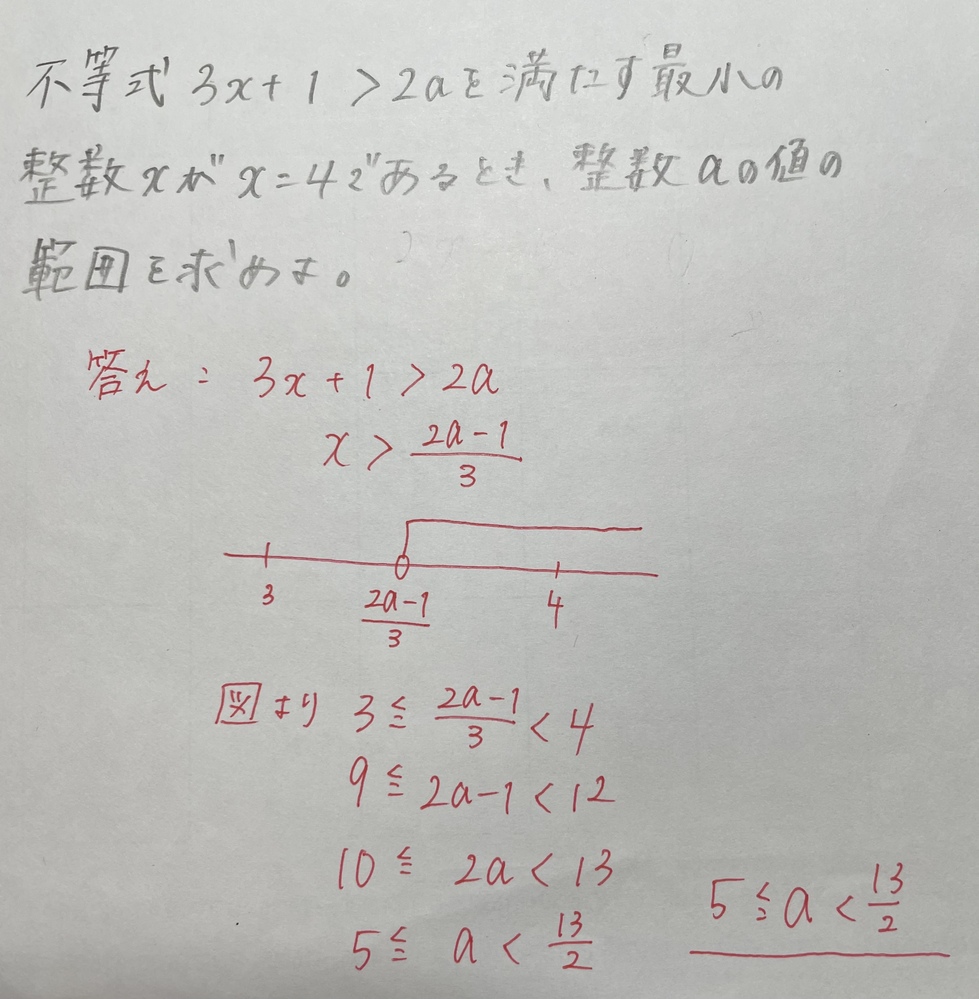 不等式 3x+1>2aを満たす最小の
整数xがx=4であるとき、整数aの値の
範囲を求めよ。
答え: 3x+1>2a
x> (2a-1)/3
3 (2a-1)/3 4
図より 3≦ (2a-1)/3 <4
9≦2a-1<12
10≦ 2a<13
5≦ a< 13/2
5≦a< 13/2